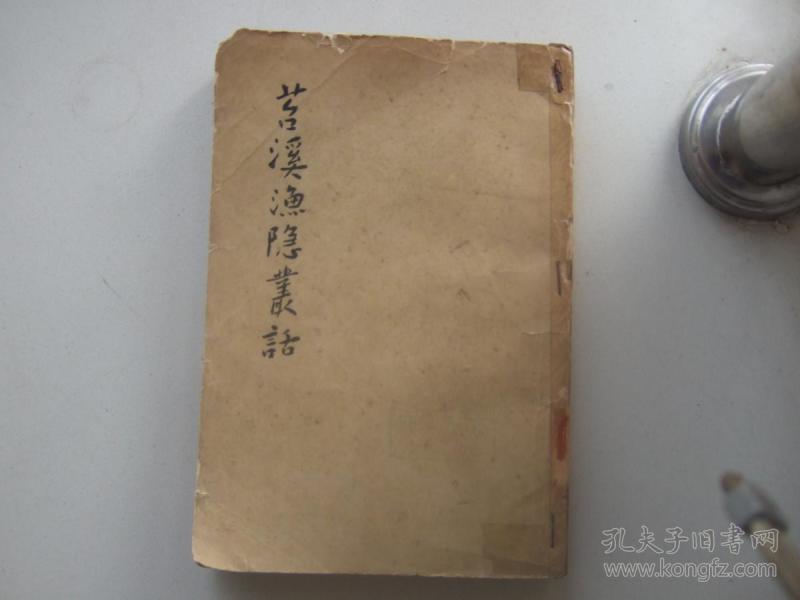 苕溪漁隐叢話
孔夫子旧书网
www.kongfz.com